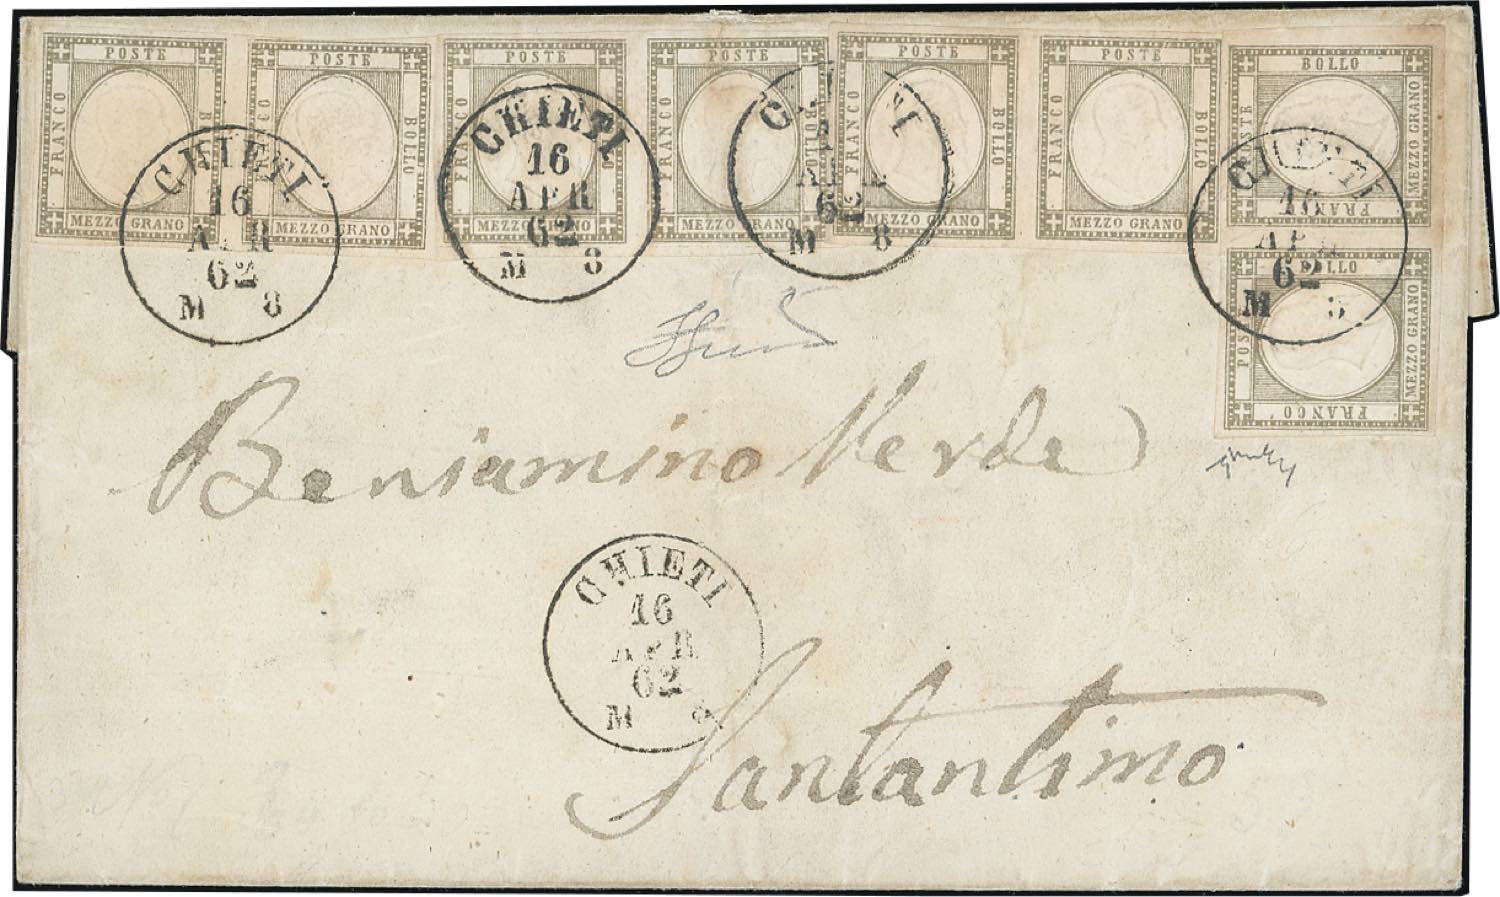 POSTE FRANCO BOLLO MEZZO GRANO
POSTE CO BOLLO MEZZO GRANO
POSTE FRANCO MEZZO GRANO
POSTE FRANCO BOLLO MEZZO GRANO
POSTE FRANCO BOLLO MEZZO GRANO
POSTE FRANCO BOLLO MEZZO GRANO
BOLLO POSTE MEZZO GRANO FRANCO
BOLLO POSTE MEZZO GRANO FRANCO
CHIETI
16
APR
62
M 8
CHIETI
16
APR
62
M 8
CHIETI
APR
62
M 8
CHIETI
16
APR
62
M
Beniamino Verde
CHIETI
16
APR
62
M 8
Santantimo